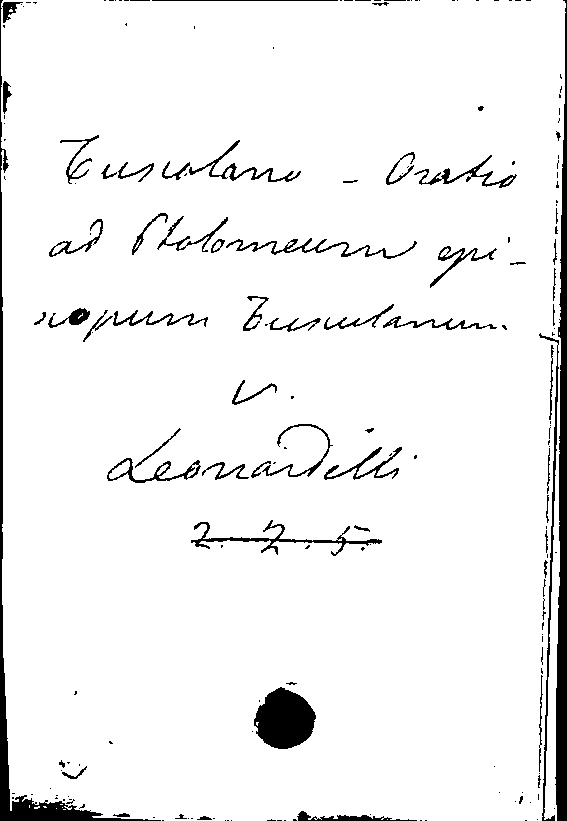 Tuscolano - Oratio
ad Ptolomeum epi-
scopum Tusculanum.
v.
Leonardelli
2. 2. 5.